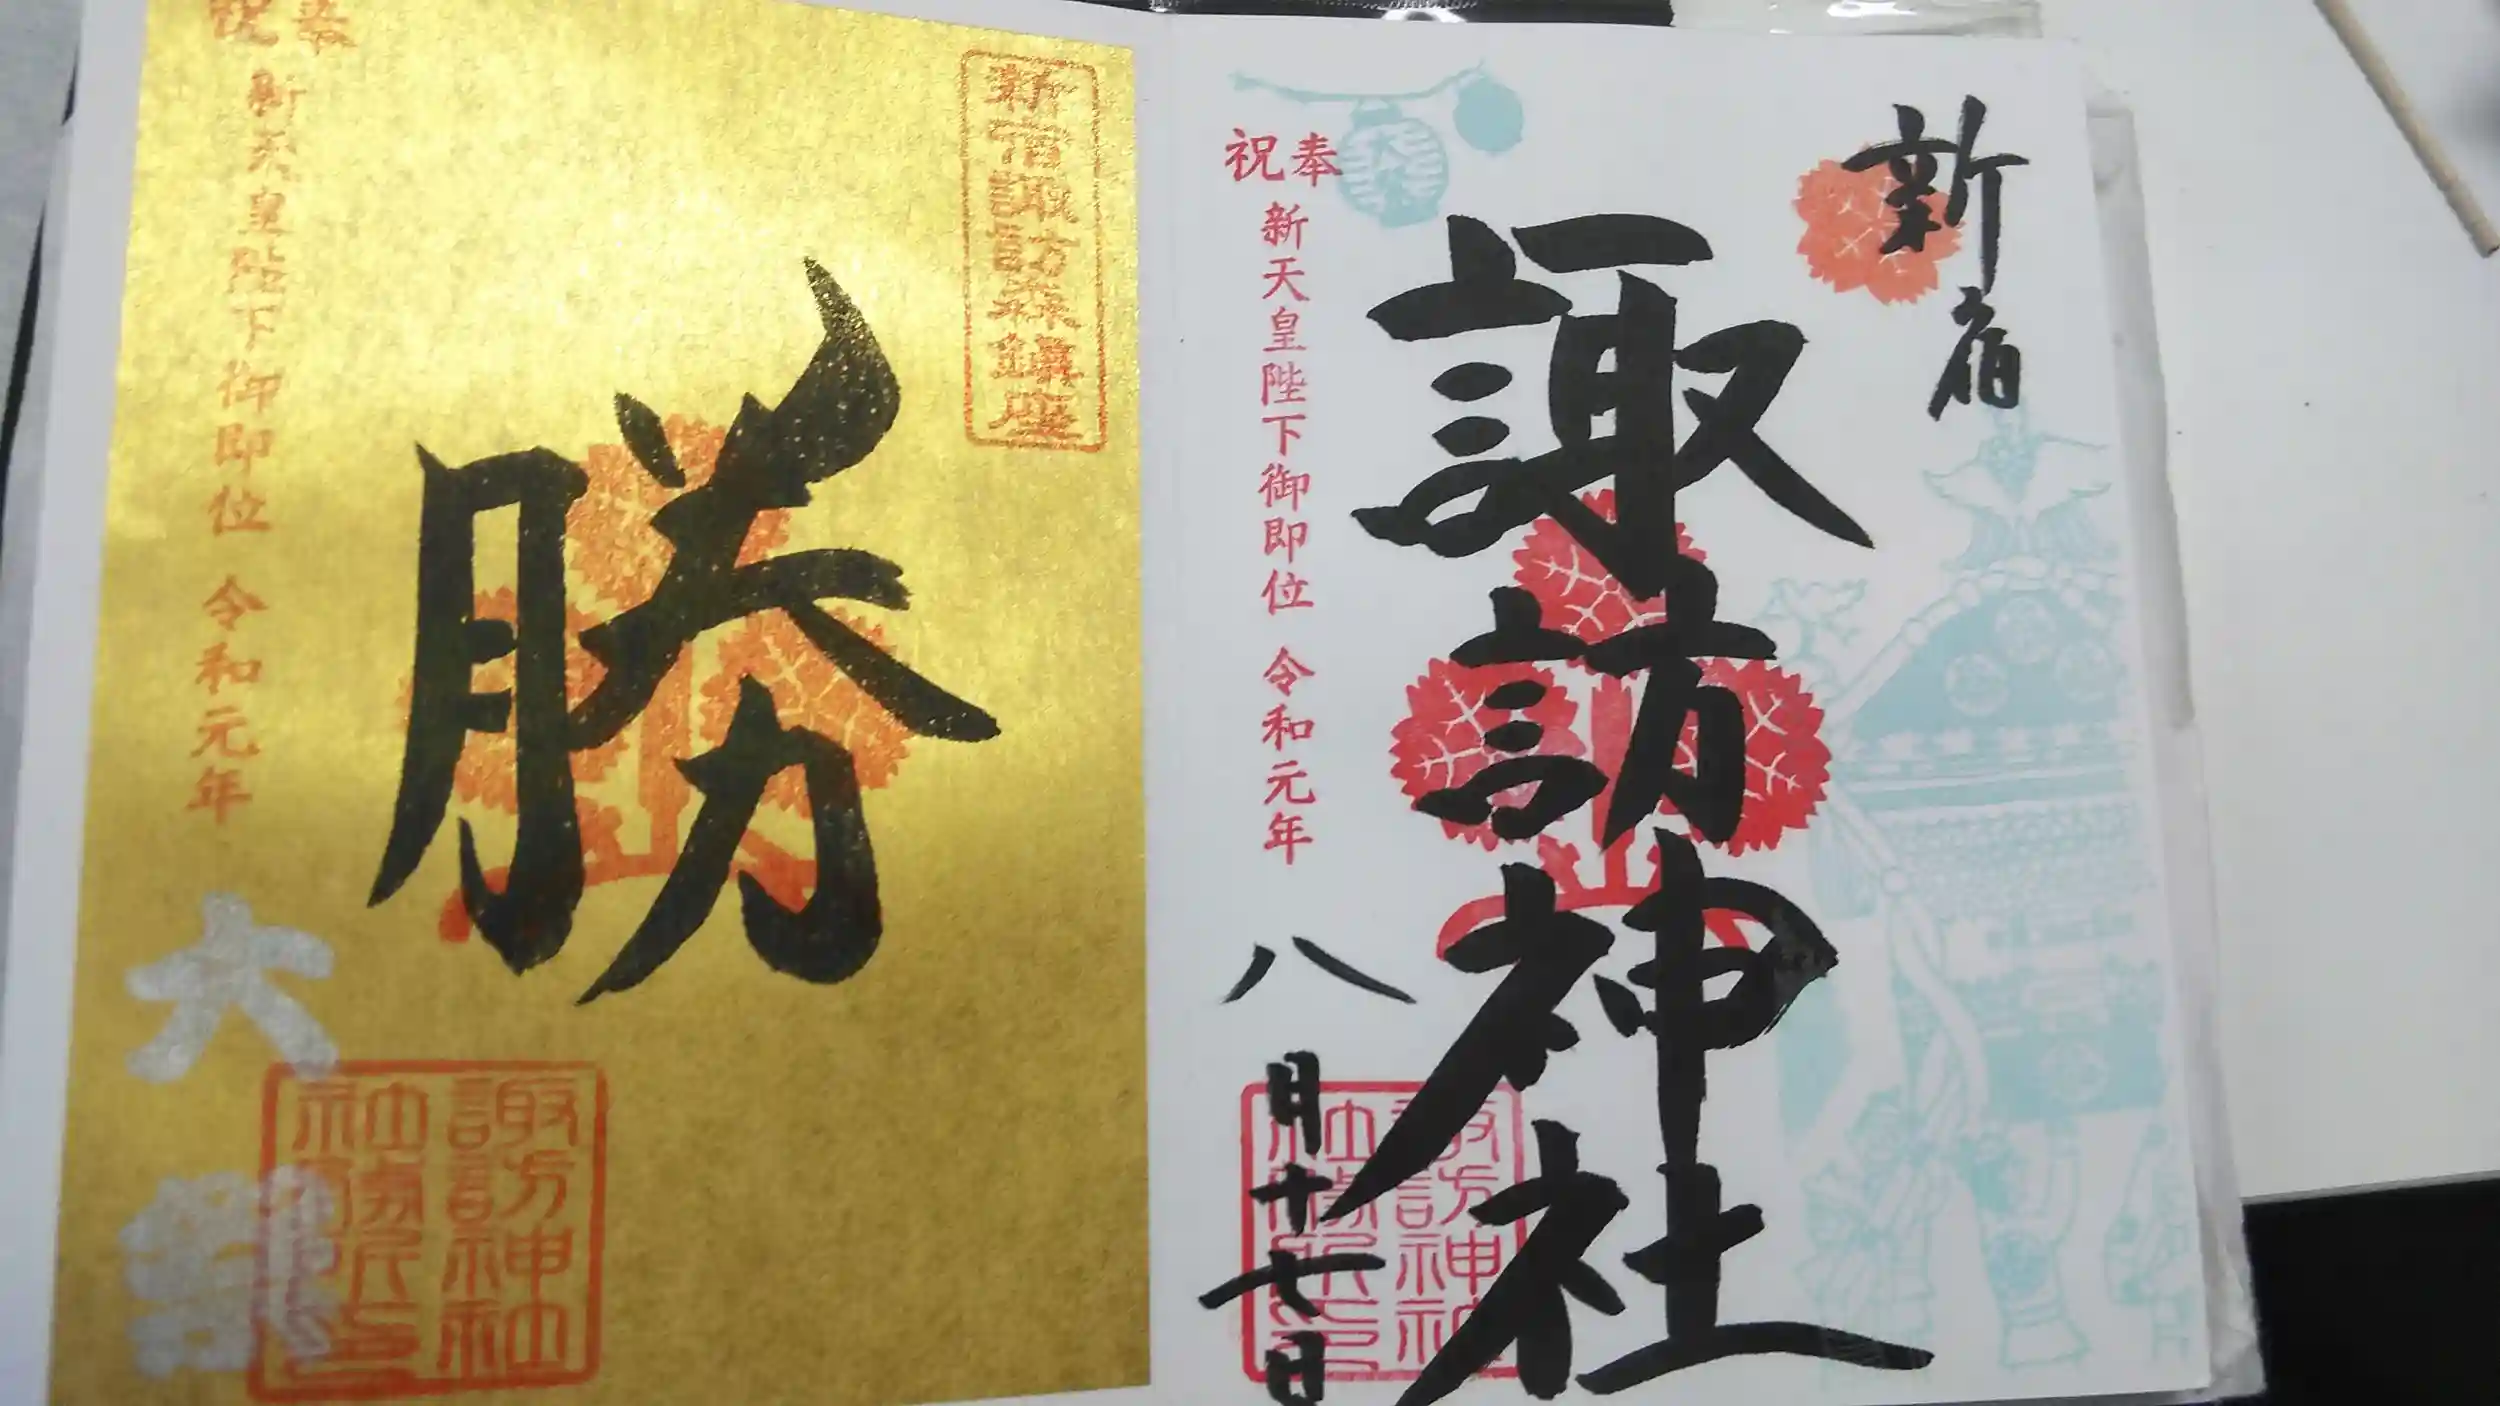 新宿
諏訪神社
奉祝
新天皇陛下御即位 令和元年
八月十七日
大祭
諏訪神社
新宿諏訪森鎮座
勝
奉祝
新天皇陛下御即位 令和元年
大祭
諏訪神社